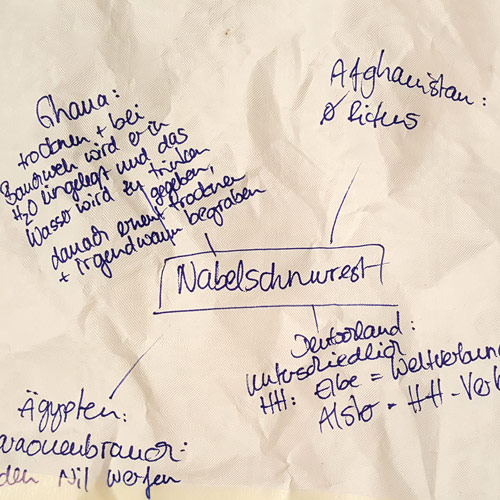 Ghana:
trocknen + bei
Bauchweh wird er in
H2O eingelegt und das
Wasser wird zu trinken
gegeben,
danach erneut trocknen
+ irgendwann begraben
Afghanistan:
Ø Ritus
Nabelschnurrest
Deutschland:
Unterschiedlich
HH: Elbe = Weltverbun
Alster = HH-Verb
Ägypten:
araonenbrauch:
den Nil werfen